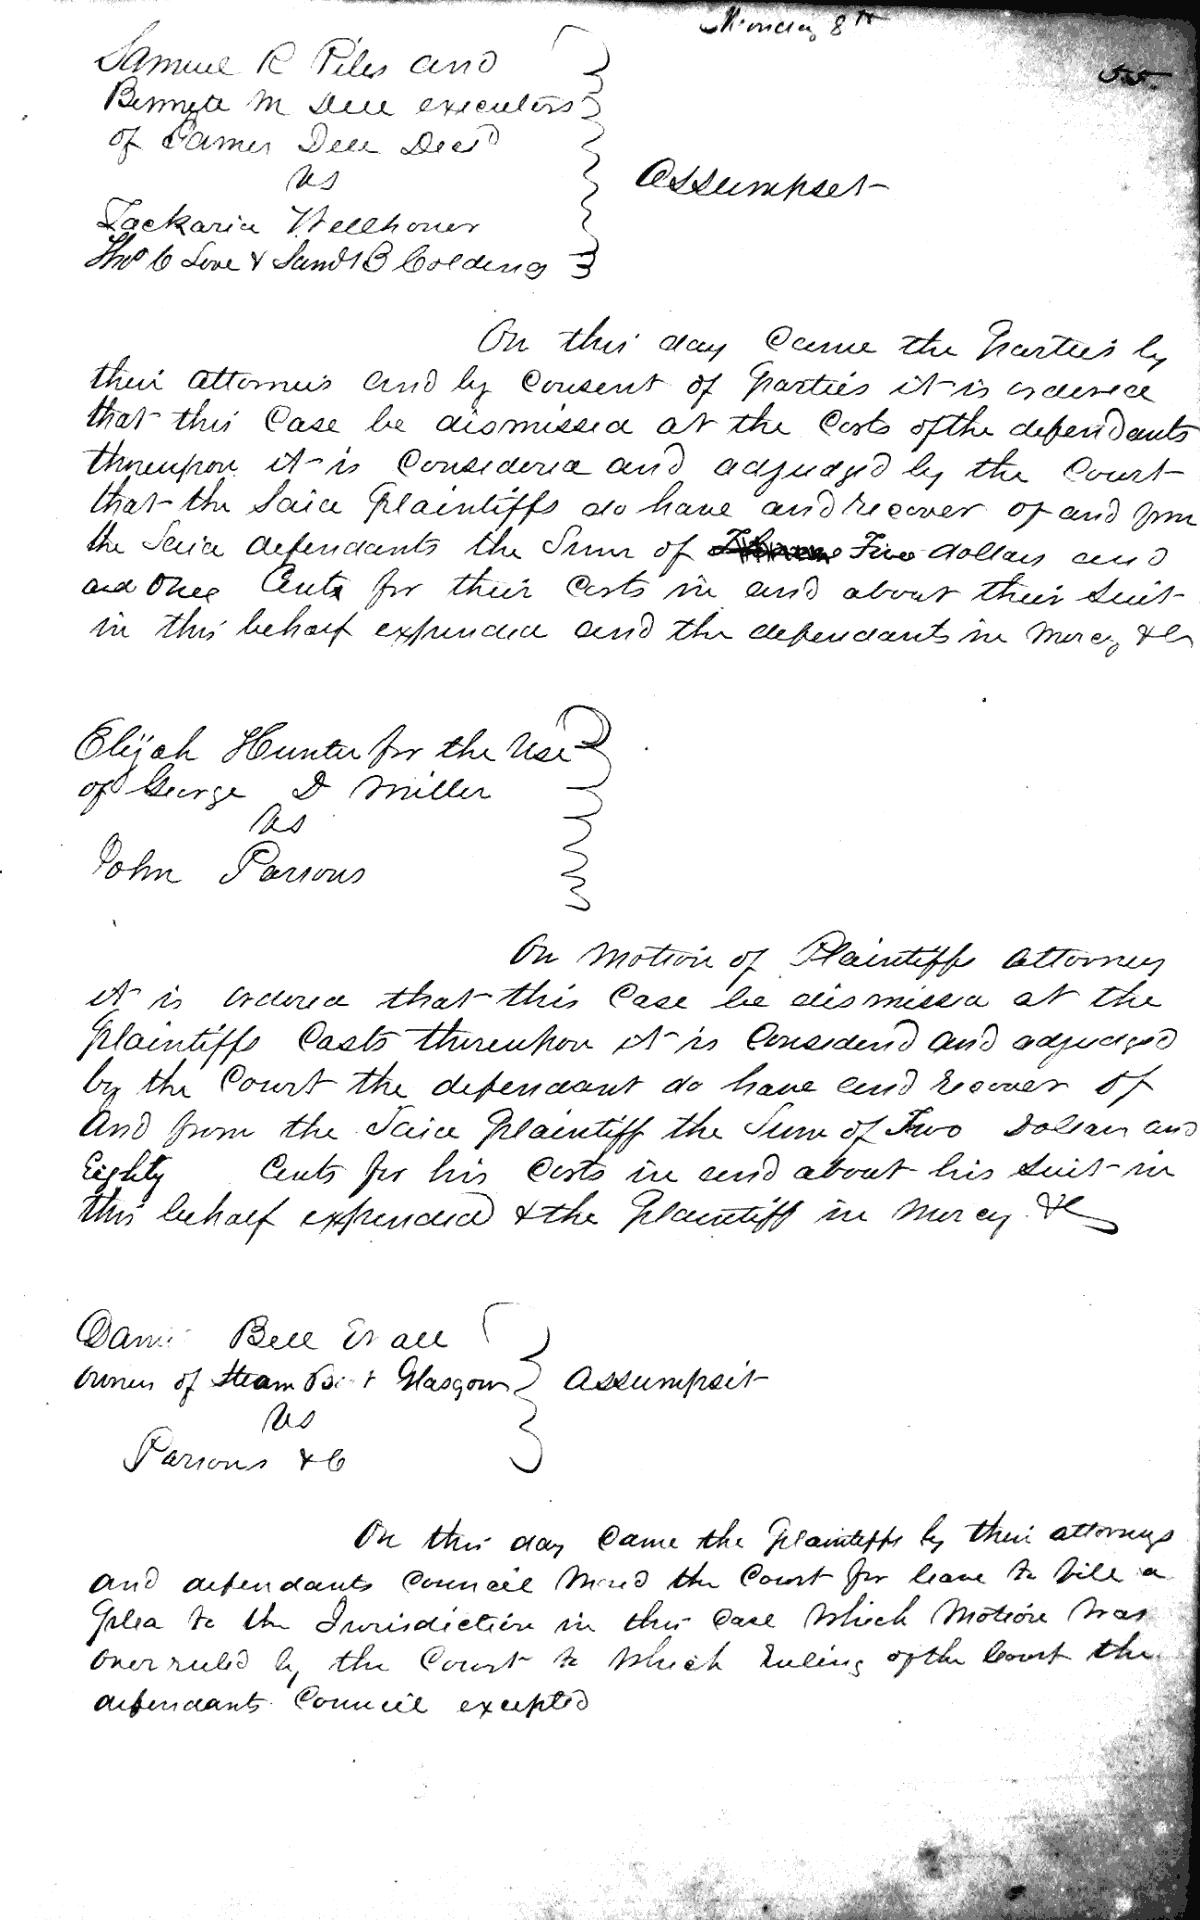 Monday 8th
55.
Samuel R Piles and
Bennete M Dell executors
of James Dell Decd
vs
Assumpset
Zackaria Wellhoner
Thos C Love & Saml B Colding
On this day Came the Parties by
their attorneis and by Consent of Parties it is ordered
that this Case be dismissed at the Costs of the defendants
thereupon it is Considered and adjudged by the Court
that the Said Plaintiffs do have and recover of and from
the Said defendants the Sum of Five dollars and
and One Cents for their Costs in and about their Suit
in this behalf expended and the defendants in Mercy &c
Elijah Hunter for the Use
of George D Miller
vs
John Parsons
On Motion of Plaintiffs attorney
it is ordered that this Case be dismissed at the
Plaintiffs Casts thereupon it is Considerd and adjudged
by the Court the defendant do have and recover of
And from the Said Plaintiff the Sum of Two Dollars and
Eighty Cents for his Costs in and about his Suit in
this behalf expended & the Plaintiff in Mercy &c
Bell Et all
owners of Steam Boat Glasgow
Assumpsit
vs
Parsons & C
On this day Came the Plaintiffs by their attorneys
and defendants Council Moved the Court for leave to file a
Plea to the Jurisdiction in this Case Which Motion Was
over ruled by the Court to Which Ruling of the Court the
defendants Council excepted